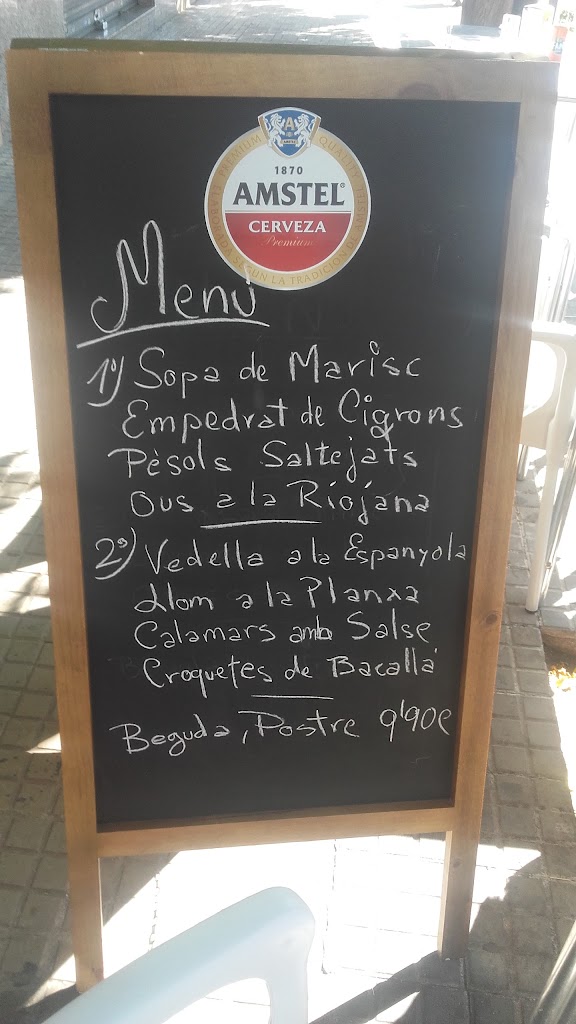 PREMIUM QUALITY
1870
AMSTEL®
CERVEZA
Premium
SEGÚN LA TRADICIÓN DE
Menú
1º) Sopa de Marisc
Empedrat de Cigrons
Pèsols Saltejats
Ous a la Riojana
2º) Vedella a la Espanyola
Llom a la Planxa
Calamars amb Salse
Croquetes de Bacallà
Beguda, Postre 9'90€